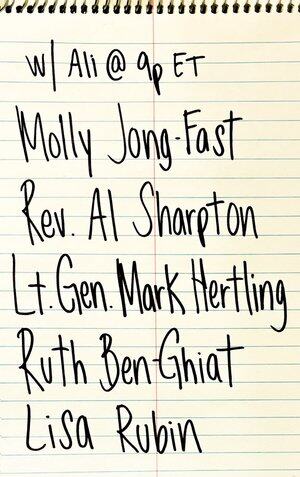 w/ Ali @ 9p ET
Molly Jong-Fast
Rev. Al Sharpton
Lt. Gen. Mark Hertling
Ruth Ben-Ghiat
Lisa Rubin